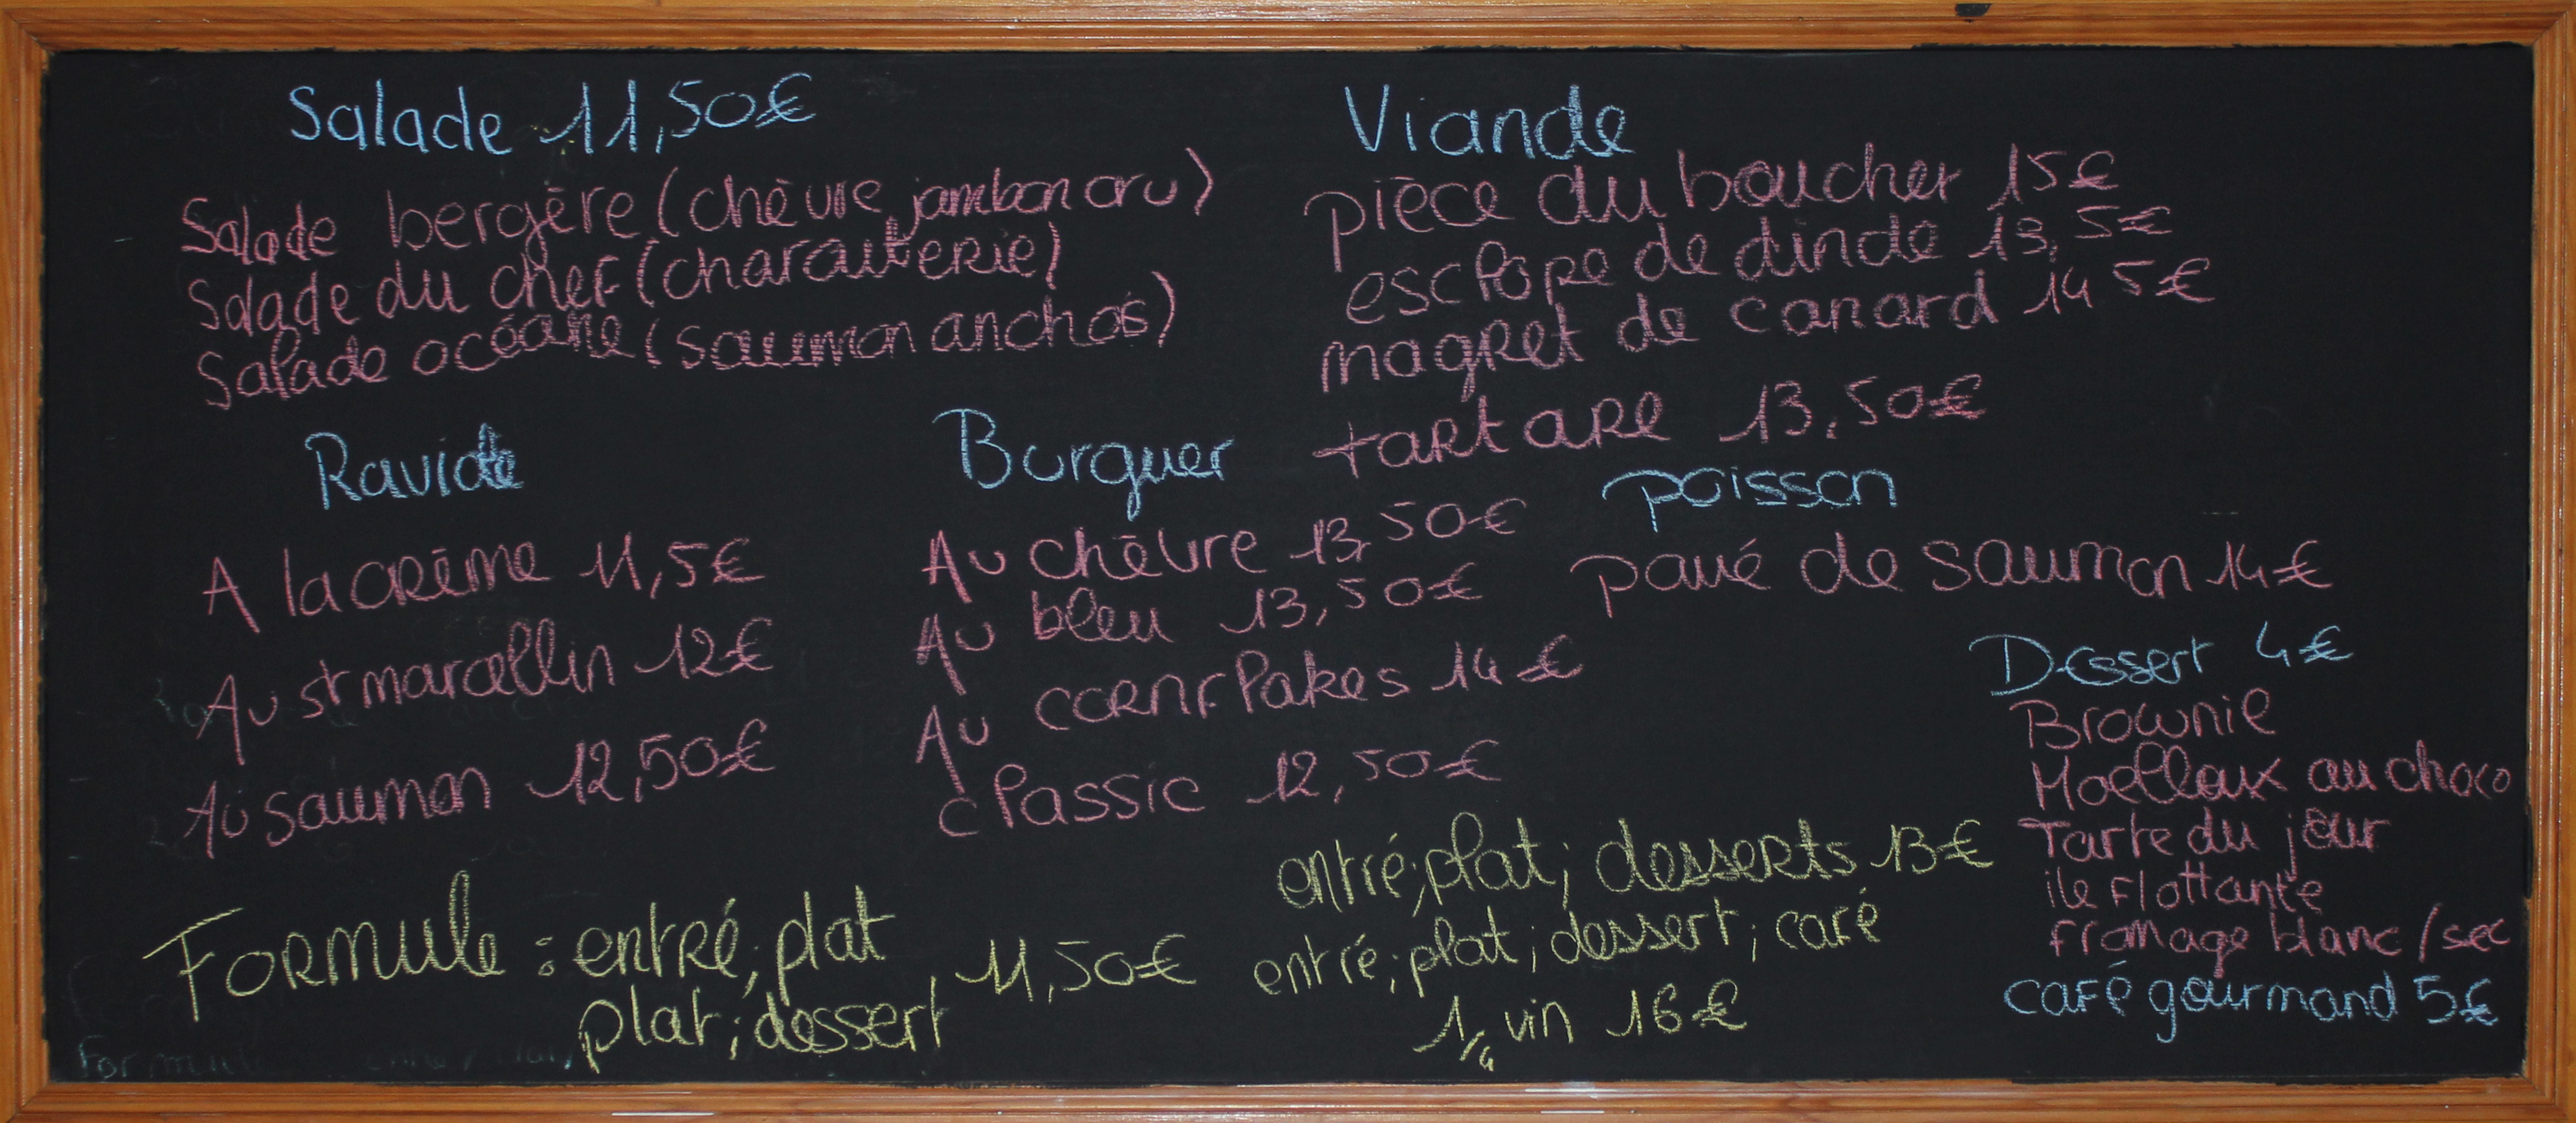 Salade 11,50€
Salade bergère (chèvre, jambon cru)
Salade du chef (charcuterie)
Salade océane (saumon anchois)
Raviole
A la crème 11,5€
Au st marcellin 12€
Au saumon 12,50€
Burguer
Au chèvre 13,50€
Au bleu 13,50€
Au cornflakes 14€
classic 12,50€
Viande
pièce du boucher 15€
esclope de dinde 13,5€
magret de canard 14 5€
tartare 13,50€
poisson
pavé de saumon 14€
Dessert 4€
Brownie
Moelleux au choco
Tarte du jour
ile flottante
fromage blanc / sec
café gourmand 5€
Formule : entré; plat
plat; dessert 11,50€
entré; plat; desserts 13€
entré; plat; dessert; café
1/4 vin 16€